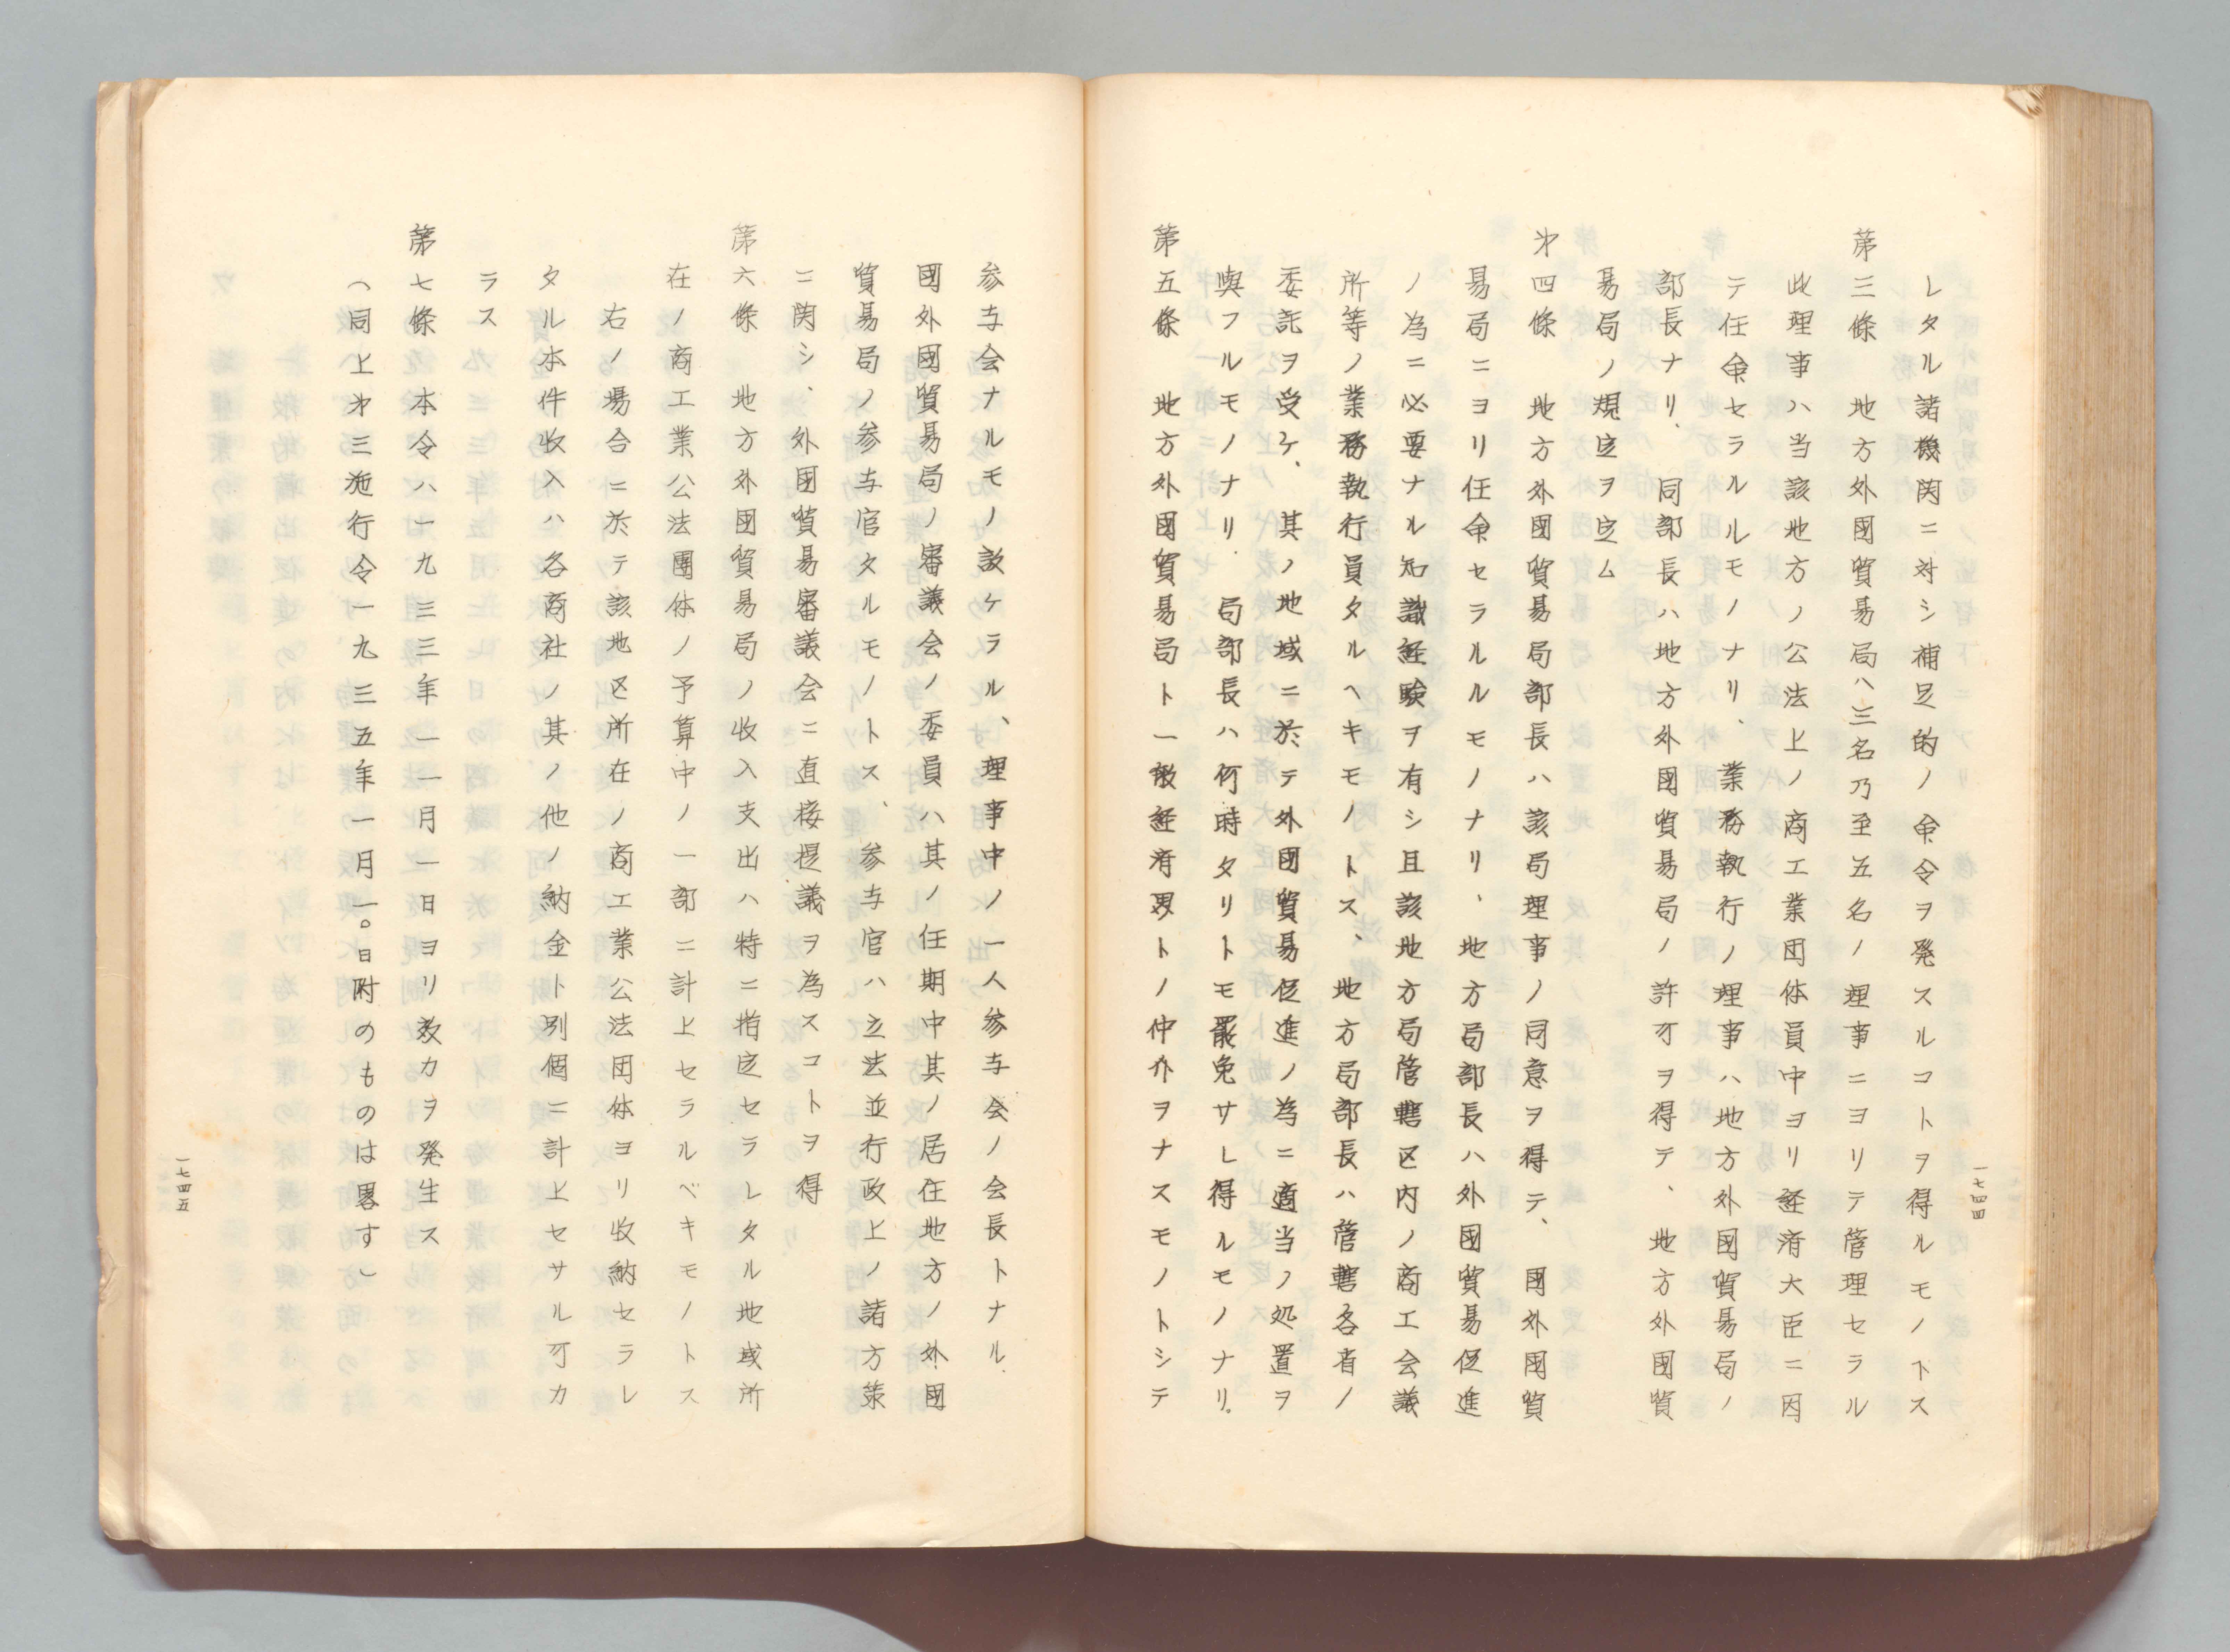 レタル諸機関ニ対シ補足的ノ命令ヲ発スルコトヲ得ルモノトス
第三條　地方外國貿易局ハ三名乃至五名ノ理事ニヨリテ管理セラル
此理事ハ当該地方ノ公法上ノ商工業団体員中ヨリ経済大臣ニ因
テ任命セラルルモノナリ、業務執行ノ理事ハ地方外國貿易局ノ
部長ナリ、同部長ハ地方外國貿易局ノ許可ヲ得テ、地方外國貿
易局ノ規定ヲ定ム
第四條　地方外國貿易局部長ハ該局理事ノ同意ヲ得テ、國外國貿
易局ニヨリ任命セラルルモノナリ、地方局部長ハ外國貿易促進
ノ為ニ必要ナル知識経験ヲ有シ且該地方局管轄区内ノ商工会議
所等ノ業務執行員タルヘキモノトス、地方局部長ハ管轄各省ノ
委託ヲ受ケ、其ノ地域ニ於テ外國貿易促進ノ為ニ適当ノ処置ヲ
與フルモノナリ．局部長ハ何時タリトモ罷免サレ得ルモノナリ．
第五條　地方外國貿易局ト一般経済界トノ仲介ヲナスモノトシテ
一七四四
参与会ナルモノ設ケラル、理事中ノ一人参与会ノ会長トナル．
國外國貿易局ノ審議会ノ委員ハ其ノ任期中其ノ居住地方ノ外國
貿易局ノ参与官タルモノトス、参与官ハ立法並行政上ノ諸方策
ニ関シ、外國貿易審議会ニ直接提議ヲ為スコトヲ得
第六條　地方外國貿易局ノ收入支出ハ特ニ指定セラレタル地域所
在ノ商工業公法團体ノ予算中ノ一部ニ計上セラルベキモノトス
右ノ場合ニ於テ該地区所在ノ商工業公法団体ヨリ收納セラレ
タル本件收入ハ各商社ノ其ノ他ノ納金ト別個ニ計上セサル可カ
ラス
第七條　本令ハ一九三三年一一月一日ヨリ效力ヲ発生ス
（同上第三施行令一九三五年一月一〇日附のものは畧す）
一七四五